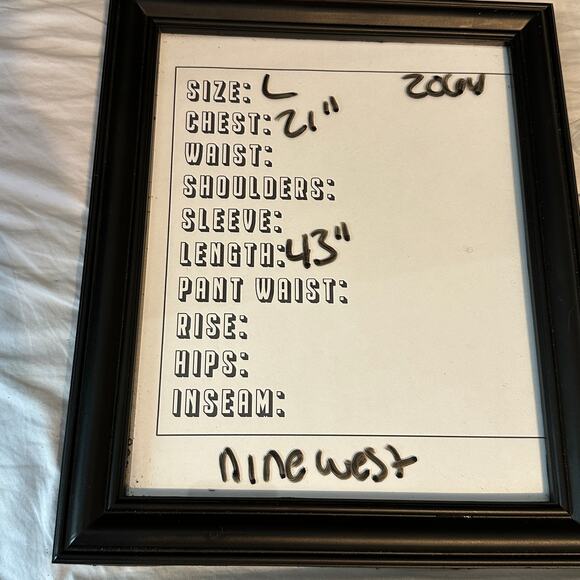 SIZE: L 2064
CHEST: 21"
WAIST:
SHOULDERS:
SLEEVE:
LENGTH: 43"
PANT WAIST:
RISE:
HIPS:
INSEAM:
nine west